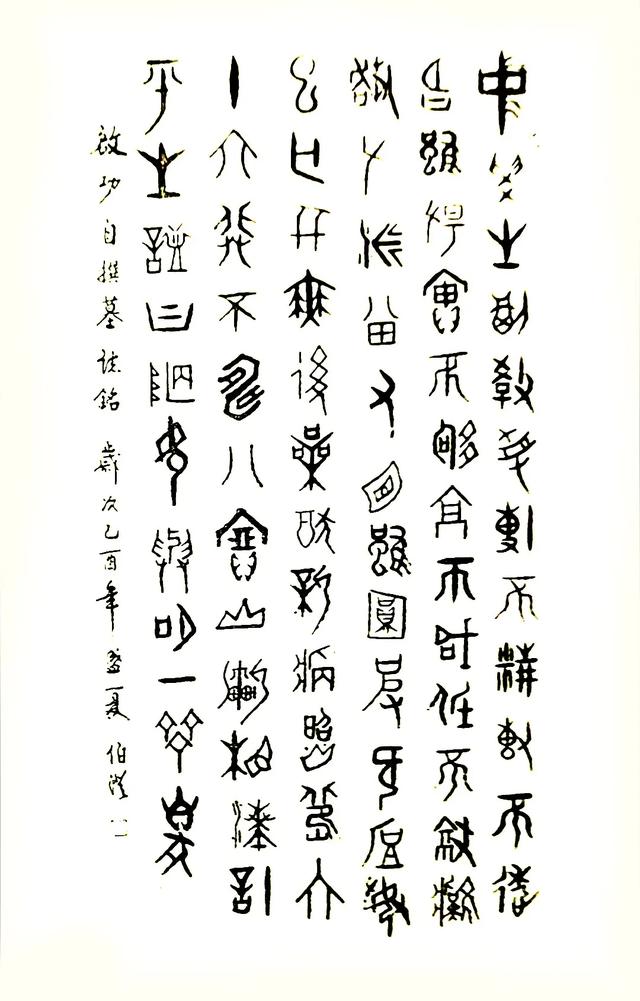 中學生副教授博不精專不透
名雖揚實不夠高不成低不就癱
趨左派曾右面雖圓皮欠厚妻
已亡并無後喪猶新病照舊六
十六非不壽八寶山漸相湊計
平生謚曰陋身與名一齊臭
啟功自撰墓誌銘 歲次乙酉年盛夏 伯